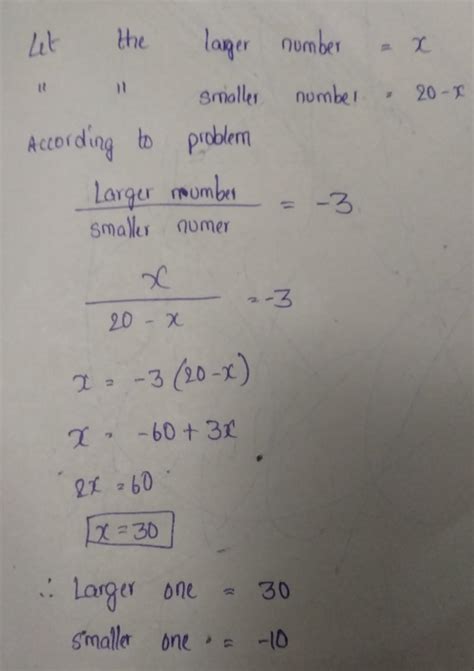 Let the larger number = x
" " smaller number = 20-x
According to problem
Larger number
smaller numer
= -3
x
20 - x
= -3
x = -3 (20-x)
x = -60 + 3x
2x = 60
x = 30
∴ Larger one = 30
smaller one = -10